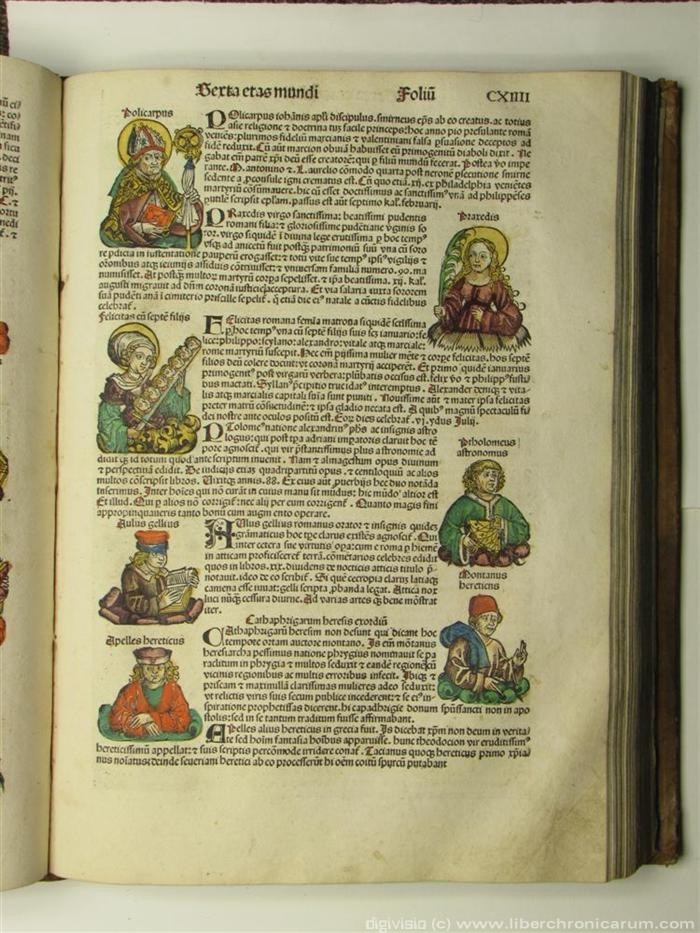 Sexta etas mundi Foliũ CXIIII
Policarpus
POlicarpus iohãnis apl̃i discipulus. smirneus ep̃s ab eo creatus. ac totius
asie religione ⁊ doctrina
falsa psuasione deceptos ad
fidẽ reduxit. Cũ aũt marcion obuiã habuisset eũ primogenitũ diaboli dixit. Ne
gabat em̃ parẽ xp̃i deũ esse creatorẽ: qui
rante. M. antonino ⁊ L. aurelio cõmodo quarta post neronẽ psecutione smirne
sedente a ꝓconsule igni crematus est. Cũ quo etiã. xij. ex philadelphia veniẽtes
martyriũ cõsũmauere. hic cũ esset doctissimus ac sanctissimus ad philippẽses
vtilẽ scripsit epl̃am. passus est aũt septimo kal. februarij.
PRaxedis virgo sanctissima: beatissimi pudentis
Praxedis
romani filia: ⁊ gloriosissime pudẽtiane virginis so
ror. virgo siquidẽ ĩ diuina lege erutissima
vsq̃ ad aniceti fuit
re pdicia in sustentatione pauperũ erogasset: ⁊ totũ vite sue
orõnibus atq̃ ieiunijs assiduis cõtriuisset: ⁊ vniuersam familiã numero. 90. ma
numisisset. At postq̃ multoꝝ martyrũ corpora sepelisset. ⁊ ipa beatissima. xij. kal.
augusti migrauit ad dñm coronã iusticie acceptura. Et via salaria iuxta sororem
suã pudẽtianã ĩ cimiterio priscille sepelit̃. q̃ etiã die ei⁹ natale a cũctis fidelibus
celebrat̃.
Felicitas cũ septẽ filijs
FElicitas romana femĩa matrona siquidẽ
cũ septẽ filijs suis
lice: philippo: syluano: alexandro: vitale atq̃ marciale:
rome martyriũ suscepit. Hec em̃ pijssima mulier mẽte ⁊ corpe felicitas. hos septẽ
filios deũ colere docuit: vt coronã martyrij acciperẽt. Et primo quidẽ ianuarius
primogenit⁹ post virgarũ verbera: plũbatis occisus est. felix ⁊o ⁊ philipp⁹ fusti
bus mactati. Syllan⁹ pcipitio trucidat⁹ interemptus. Alexander deniq̃ ⁊ vita-
lis atq̃ marcialis capitali sñia sunt puniti. Nouissime aũt ⁊ mater ipsa felicitas
preter matrũ cõsuetudinẽ: ⁊ ipsa gladio necata est. A quib⁹ magnũ spectaculũ fi
dei nostre ante oculos positũ est. Eoꝝ dies celebrat̃. vj. ydus Julij.
PTolome⁹ natione alexandrin⁹ ph̃s ac insignis astro
Ptholomeus
astronomus
logus: qui post tp̃a adriani imperatoris claruit hoc tẽ
pore agnoscit̃. qui vir pstantissimus plus astronomie ad
didit q̃ id totum quod ante scriptum inuenit. Nam ⁊ almagestum opus diuinum
⁊ perspectiuã edidit. De iudicijs etiã quadripartitũ opus. ⁊ centiloquiũ ac alios
multos cõscripsit libros. Vixitq̃ annis. 88. Ex cuius aũt puerbijs hec duo notãda
inserimus. Inter hoies qui nõ curãt in cuius manu sit mũdus: hic mũdo altior est
Et illud. Qui ꝑ alios nõ corrigit̃: nec alij per eum corrigent̃. Quanto magis fini
appropinquaueris tanto bonũ cum augmẽto operare.
Aulus gellius
AUlus gellius romanus orator ⁊ insignis quidẽ
grãmaticus hoc tp̃e clarus existẽs agnoscit̃. Qui
inter cetera sue virtutis opa: cum e roma
in atticam proficisceret̃ terrã. cõmetarios celebres edidit
quos in libros. xix. diuidens de nocticis atticis titulo p̃-
notauit. ideo de eo scribit̃. Si quẽ cecropia clarus latiaq̃
camena esse iuuat: gelli scripta ꝓbanda legat. Attica nox
luci nũq̃ cessura diurne. Ad varias artes q̃ bene mõstrat
iter.
Montanus
hereticus
Cathaphrigarum heresis exordiũ
Apelles hereticus
CAthaphrigarũ heresim non desunt qui dicant hoc
tempore ortam auctore montano. Is em̃ mõtanus
heresiarcha pessimus natione phrygius nominauit se pa
raclitum in phrygia ⁊ multos seduxit ⁊ eandẽ regionẽ cũ
vicinis regionibus ac multis erroribus infecit. Ibiq̃ ⁊
priscam ⁊ maximillã clarissimas mulieres adeo seduxit:
vt relictis viris suis secum publice incederent: ⁊ se ex in-
spiratione prophetissas dicerent. hi capadhrigie donum spũssancti non in apo
stolis: sed in se tantum traditum fuisse affirmabant.
APelles alius hereticus in grecia fuit. Is dicebat xp̃m non deum in verita/
te sed hoĩm fantasia hoĩbus apparuisse. hunc theodocion vir eruditissim⁹
hereticissimũ appellat: ⁊ suis scriptis percõmode irridere conat̃. Tacianus quoq̃ hereticus primo xp̃ia/
nus
deinde seueriani heretici ab eo processerũt hi oẽm coitũ spurcũ putabant
digivisio (c) www.liberchronicarum.com